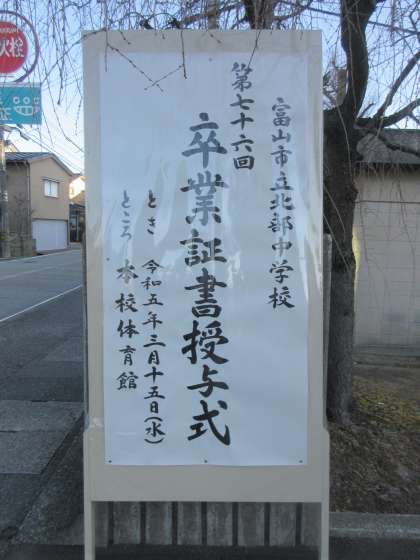 富山市立北部中学校
第七十六回
卒業証書授与式
とき 令和五年三月十五日(水)
ところ 本校体育館